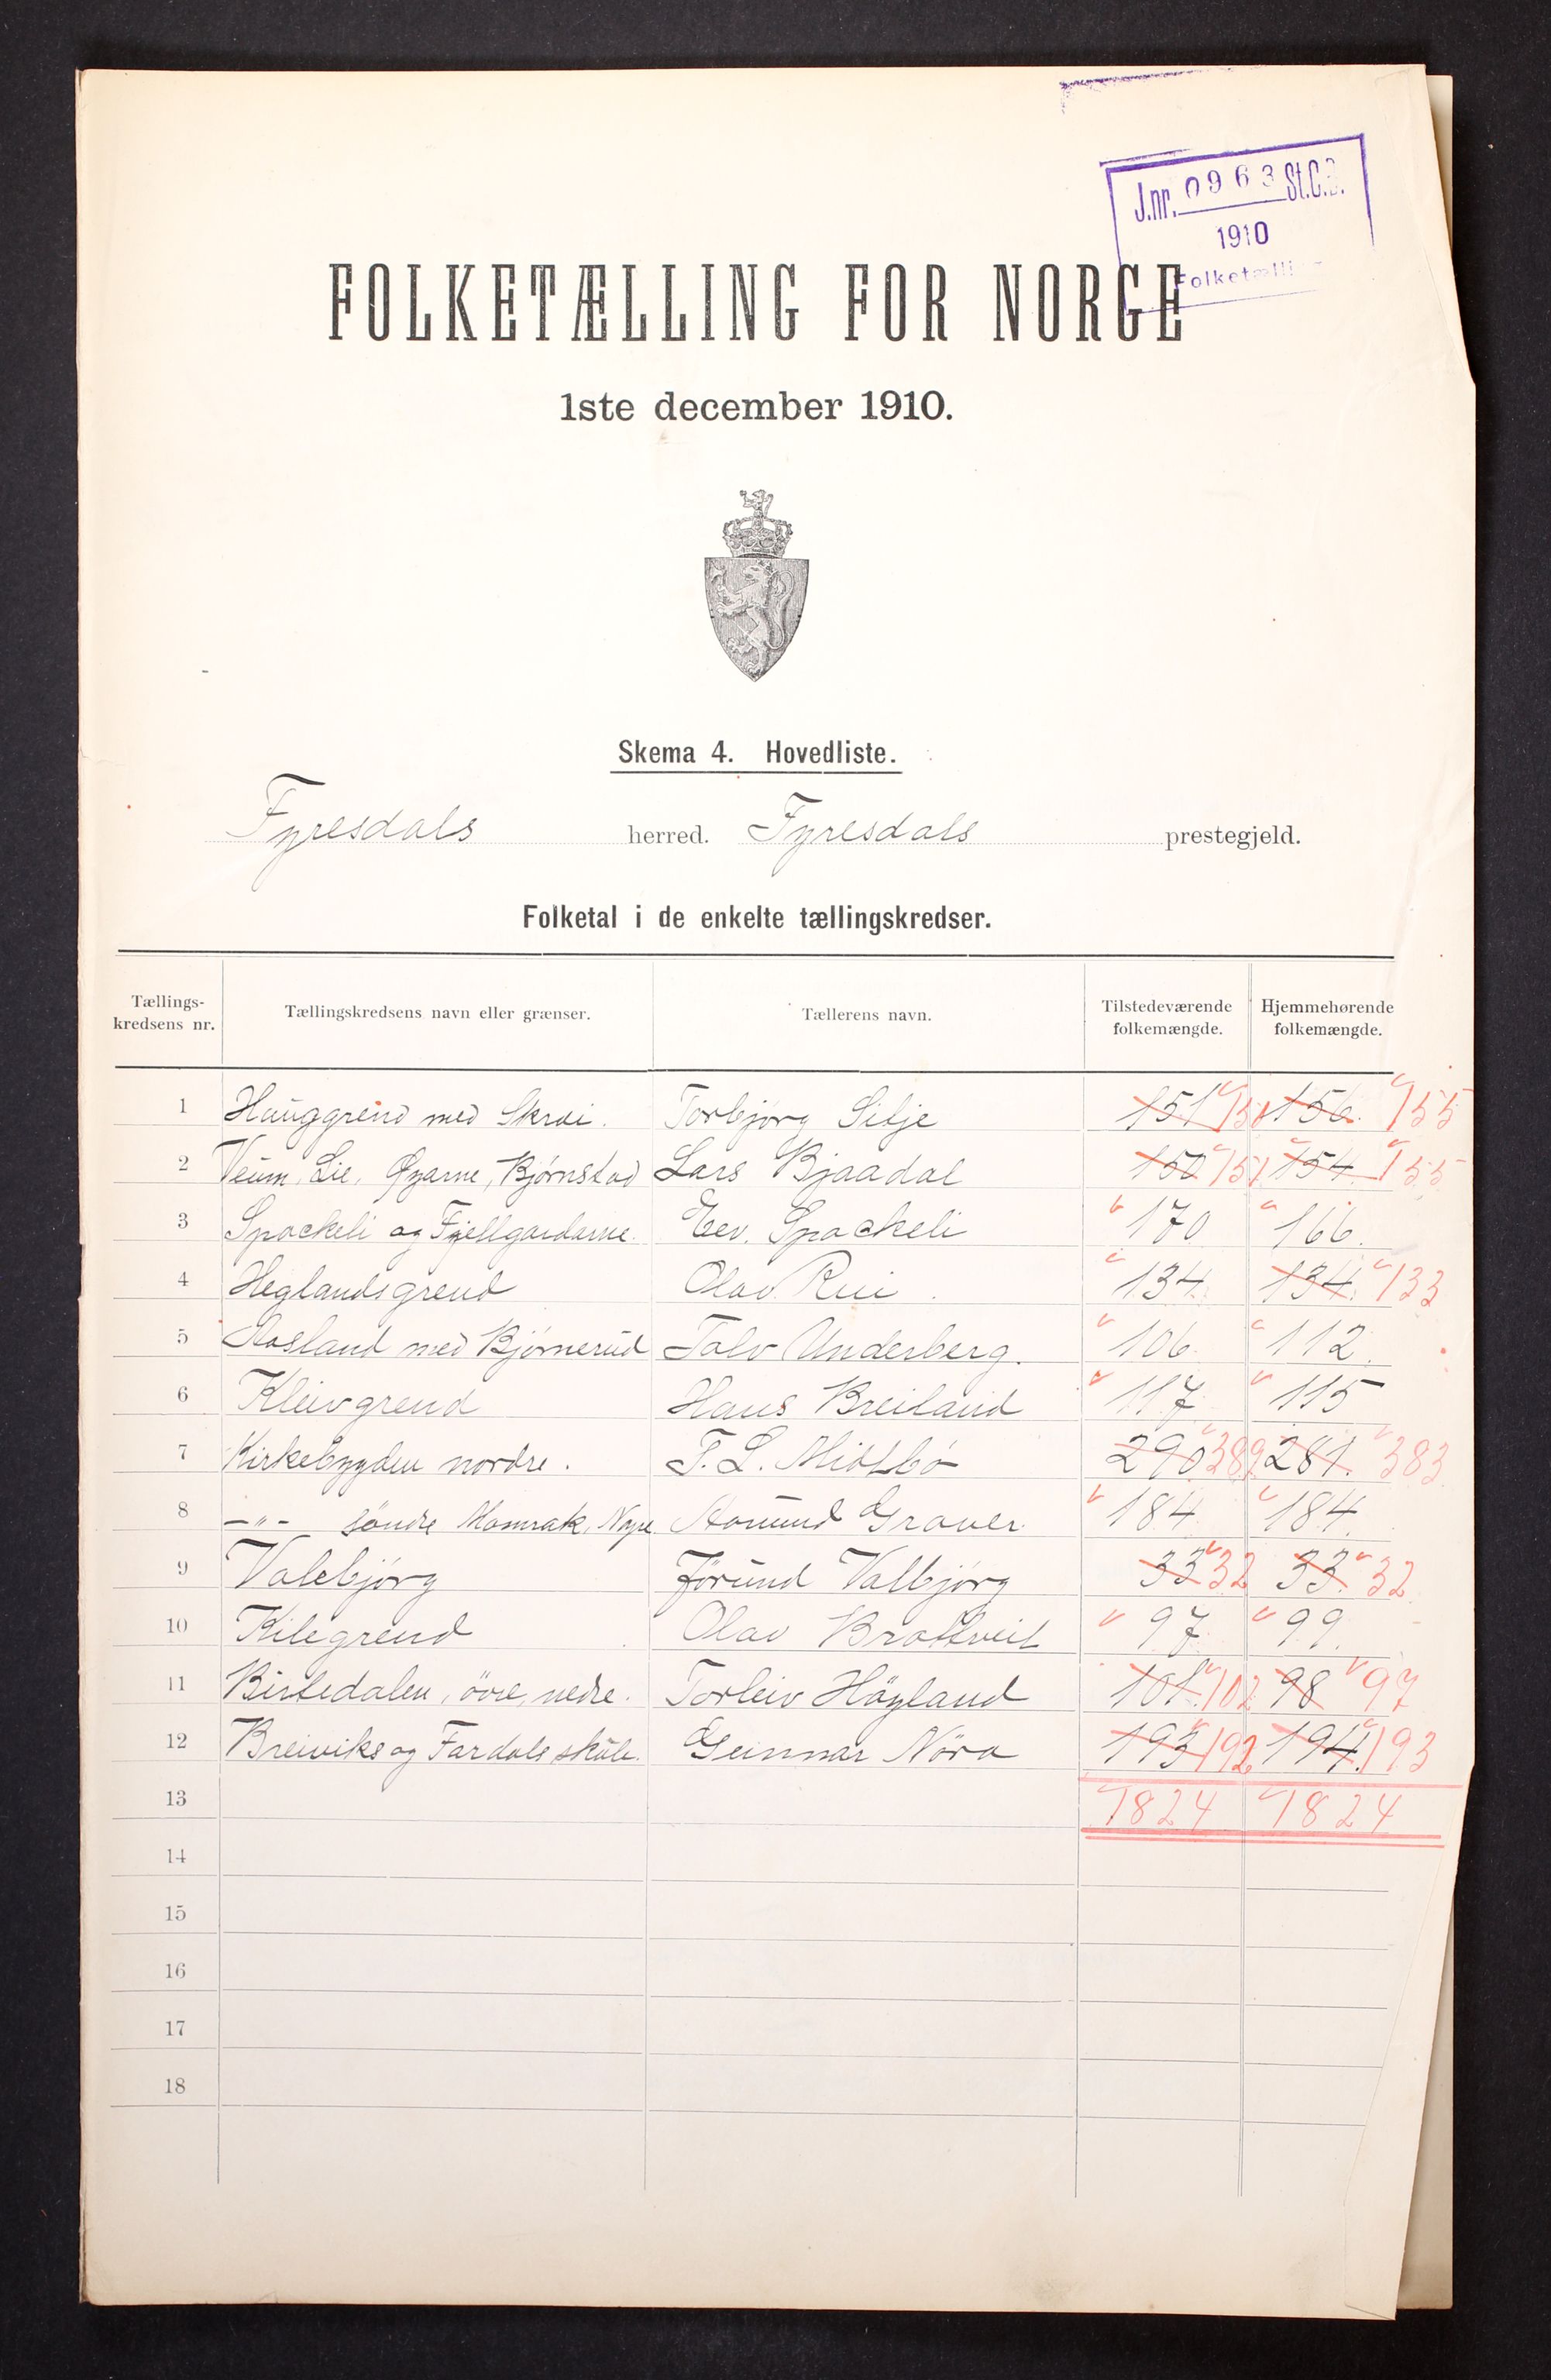 J.nr. 0963 St.C.B.
1910
Folketælling
FOLKETÆLLING FOR NORGE
1ste december 1910.
Skema 4. Hovedliste.
Fyresdals herred. Fyresdals prestegjeld.
Folketal i de enkelte tællingskredser.
Tællings-kredsens nr. Tællingskredsens navn eller grænser. Tællerens navn. Tilstedeværende folkemængde. Hjemmehørende folkemængde.
1 Hauggrend med Skrai. Torbjørg Silje 151 150 156. 155
2 Veum, Lie, Øyarne, Bjørnstad Lars Bjaadal 150 151 154 155
3 Spockeli og Fjellgardarne. Eev. Spockeli 170 166.
4 Heglandsgrend Olav Rui 134 134. 133
5 Aasland med Bjørnerud Talv Underberg. 106 112.
6 Kleivgrend Hans Breiland 117 115
7 Kirkebygden nordre. T. L. Midtbö 290 389 281. 383
8 -"- söndre Momrak, Nape Aamund Graver 184 184.
9 Valebjörg Jörund Valbjörg 33 32 33. 32
10 Kilegrend Olav Brattveit 97 99.
11 Birtedalen, övre, nedre. Torleiv Höyland 101. 102 98 97
12 Breiviks og Fardals skule. Gunnar Nöra 193 192 194. 193
13 1824 1824
14
15
16
17
18